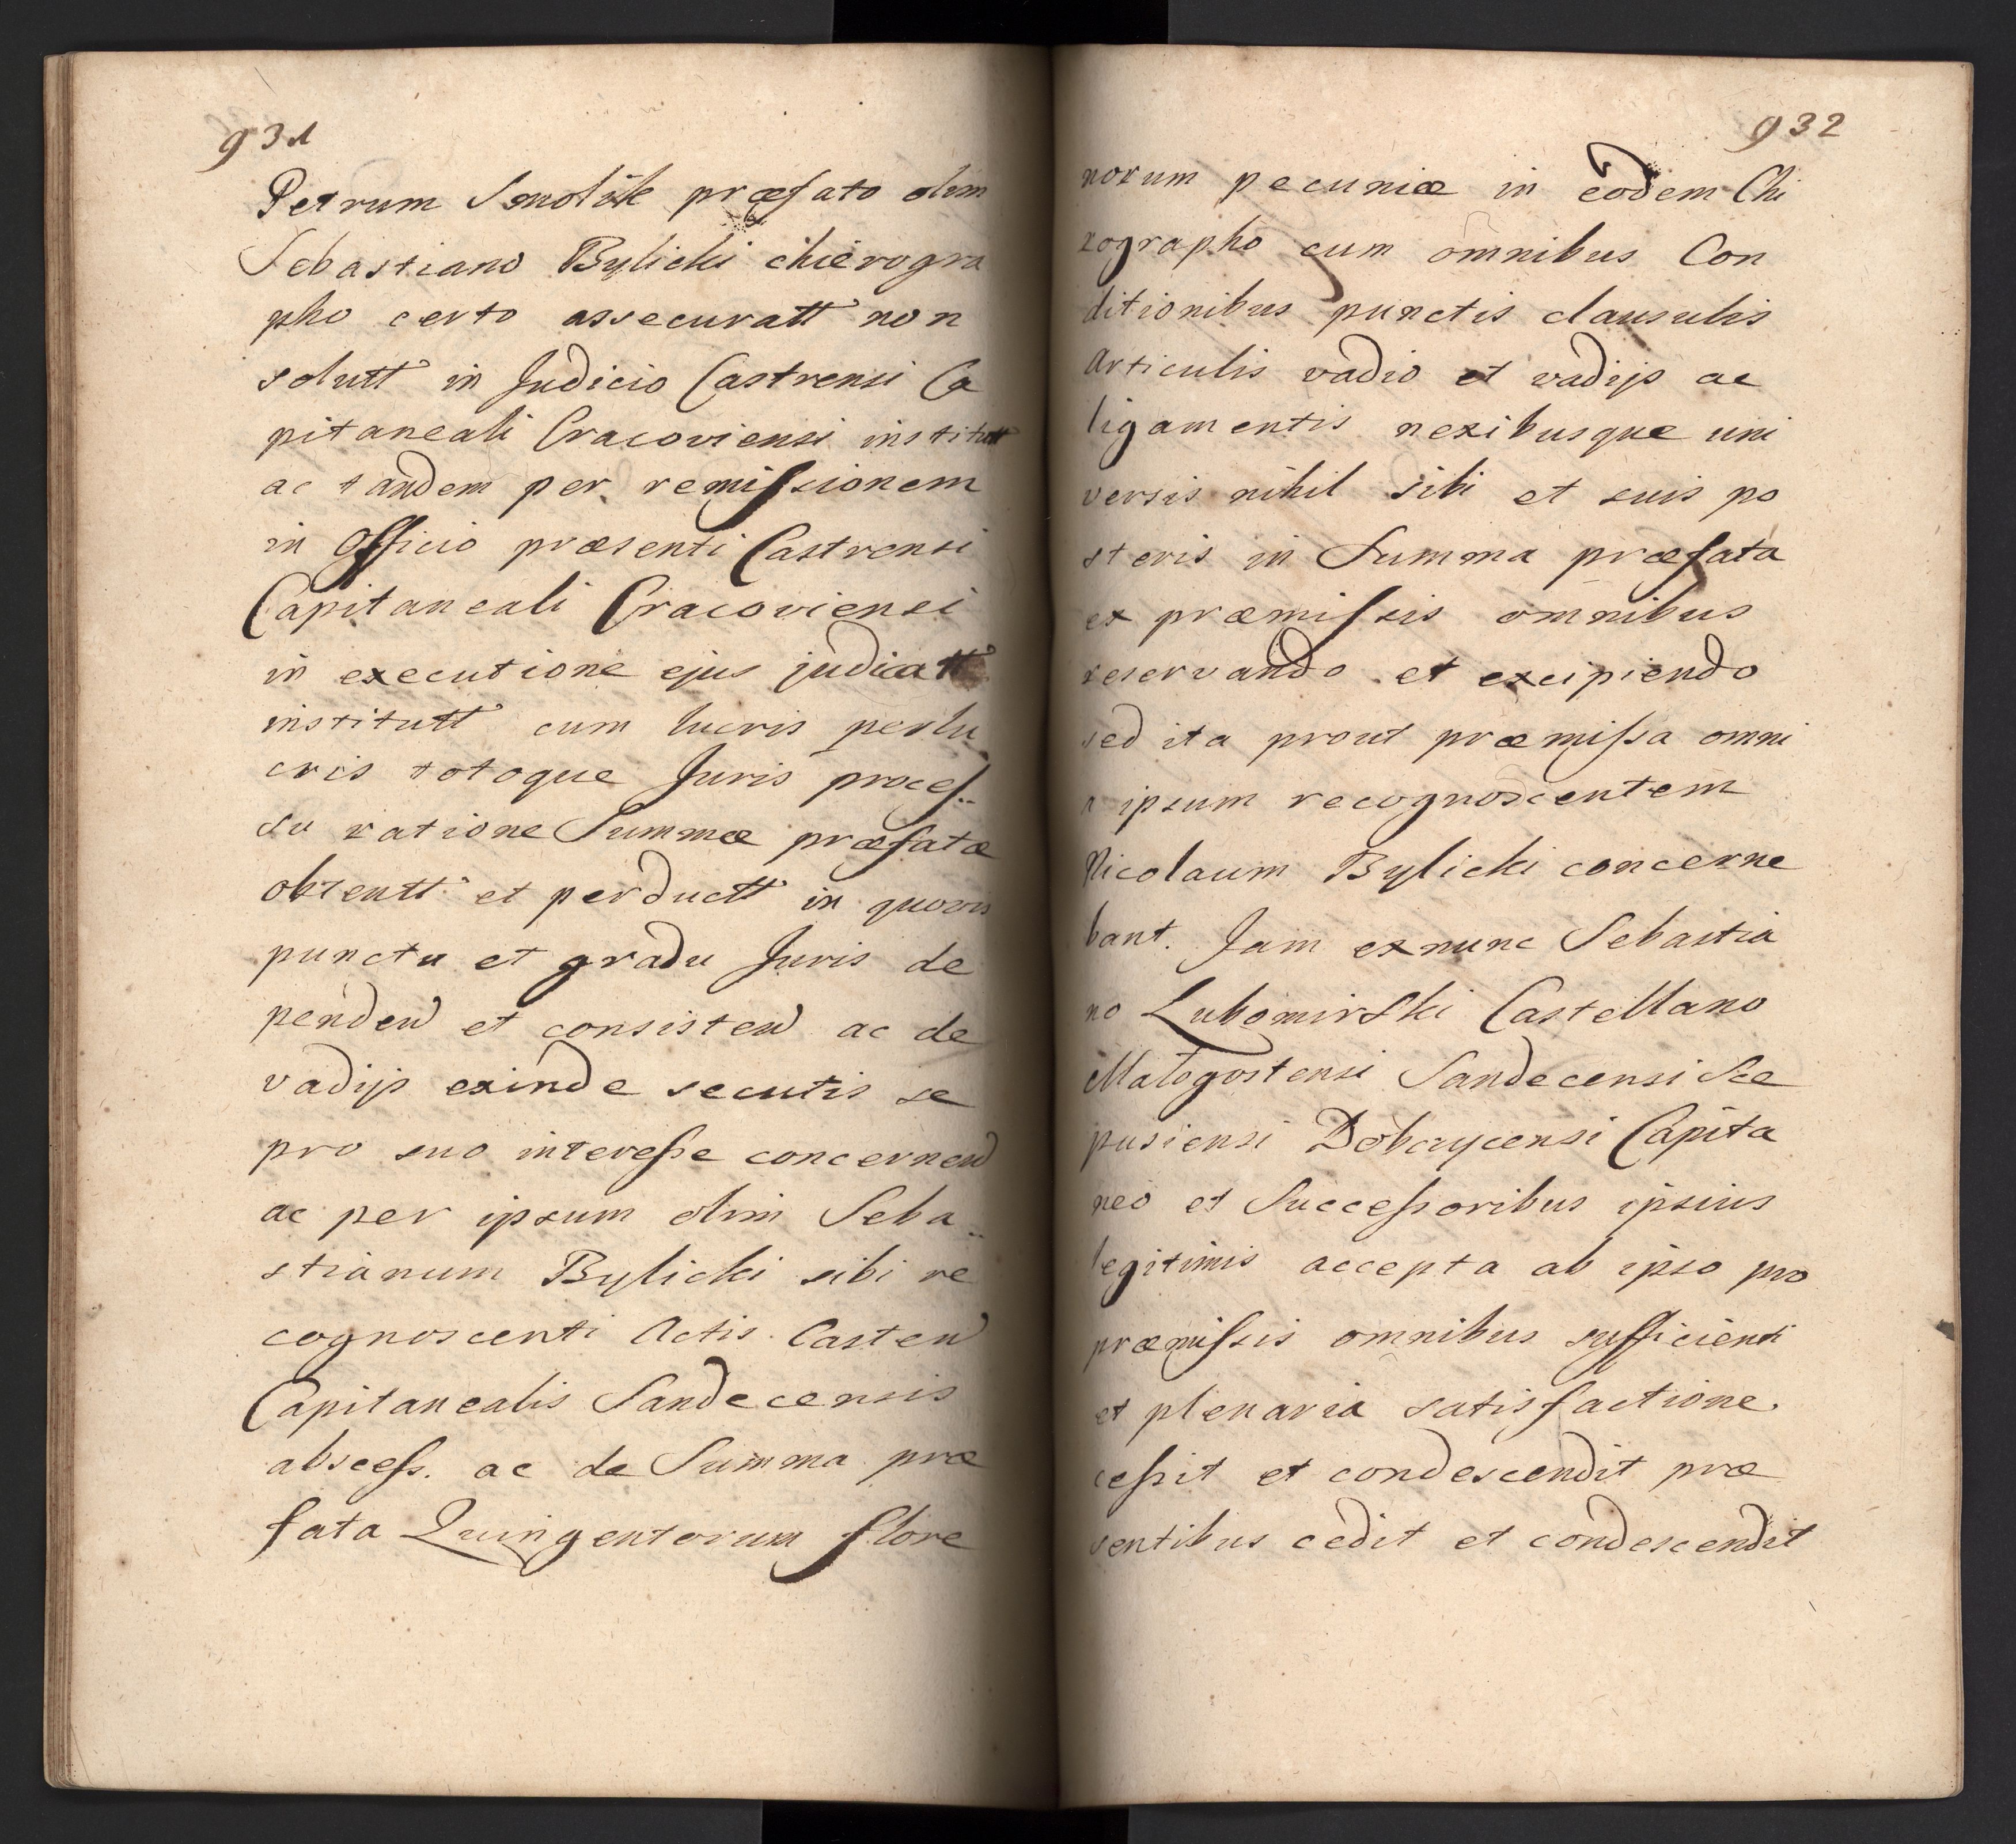 931
Petrum Smolik præfato olim
Sebastiano Bylicki chierogra
pho certo assecuratt non
solutt in Judicio Castrensi Ca
pitaneali Cracoviensi institutt
ac tandem per remissionem
in Officio præsenti Castrensi
Capitaneali Cracoviensi
in executione ejus judicatt
institutt cum lucris perlu
cris totoque Juris proces..
su ratione Summæ præfatæ
obtentt et perductt in quovis
punctu et gradu Juris de
penden et consisten ac de
vadijs exinde secutis se
pro suo interesse concernen
ac per ipsum olim Seba..
stianum Bylicki sibi re
cognoscenti Actis Casten
Capitanealis Sandecensis
abscess. ac de Summa præ
fata Quingentorum flore
932
norum pecuniæ in eodem Chi
rographo cum omnibus Con
ditionibus punctis clausulis
Articulis vadio et vadijs ac
ligamentis nexibusque uni
versis nihil sibi et suis po
steris in Summa præfata
ex præmissis omnibus
reservando et excipiendo
sed ita prout præmissa omni
a ipsum recognoscentem
Nicolaum Bylicki concerne
bant. Jam exnunc Sebastia
no Lubomirski Castellano
Malogostensi Sandecensi Sce
pusiensi Dobczycensi Capita
neo et Successoribus ipsius
legitimis accepta ab ipso pro
præmissis omnibus sufficienti
et plenaria satisfactione.
cessit et condescendit præ
sentibus cedit et condescendit